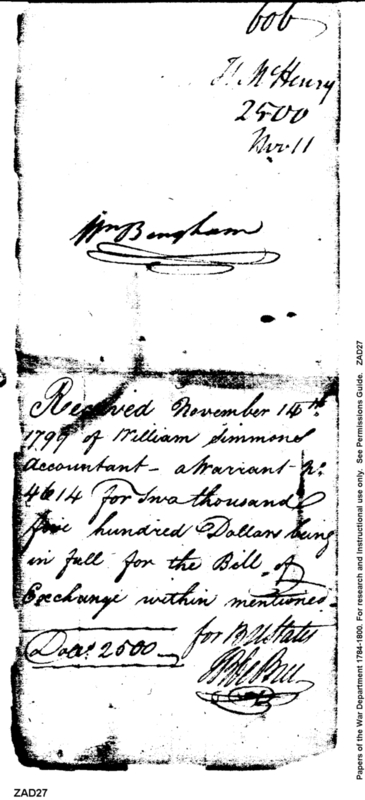 606
McHenry
2500
Nov 11
Wm Bingham
Received November 14th
1799 of William Simmons
Accountant - a Warrant No.
4614 for two thousand
five hundred Dollars being
in full for the Bill of
Exchange within mentioned
for B U States
Dolls 2500
Papers of the War Department 1784-1800. For research and Instructional use only. See Permissions Guide. ZAD27
ZAD27